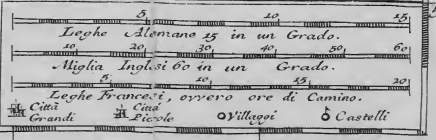 5 10 15
Leghe Alemane 15 in un Grado.
10 20 30 40 50 60
Miglia Inglesi 60 in un Grado.
5 10 15 20
Leghe Francesi, ovvero ore di Camino.
Città Grandi Città Picole Villaggi Castelli